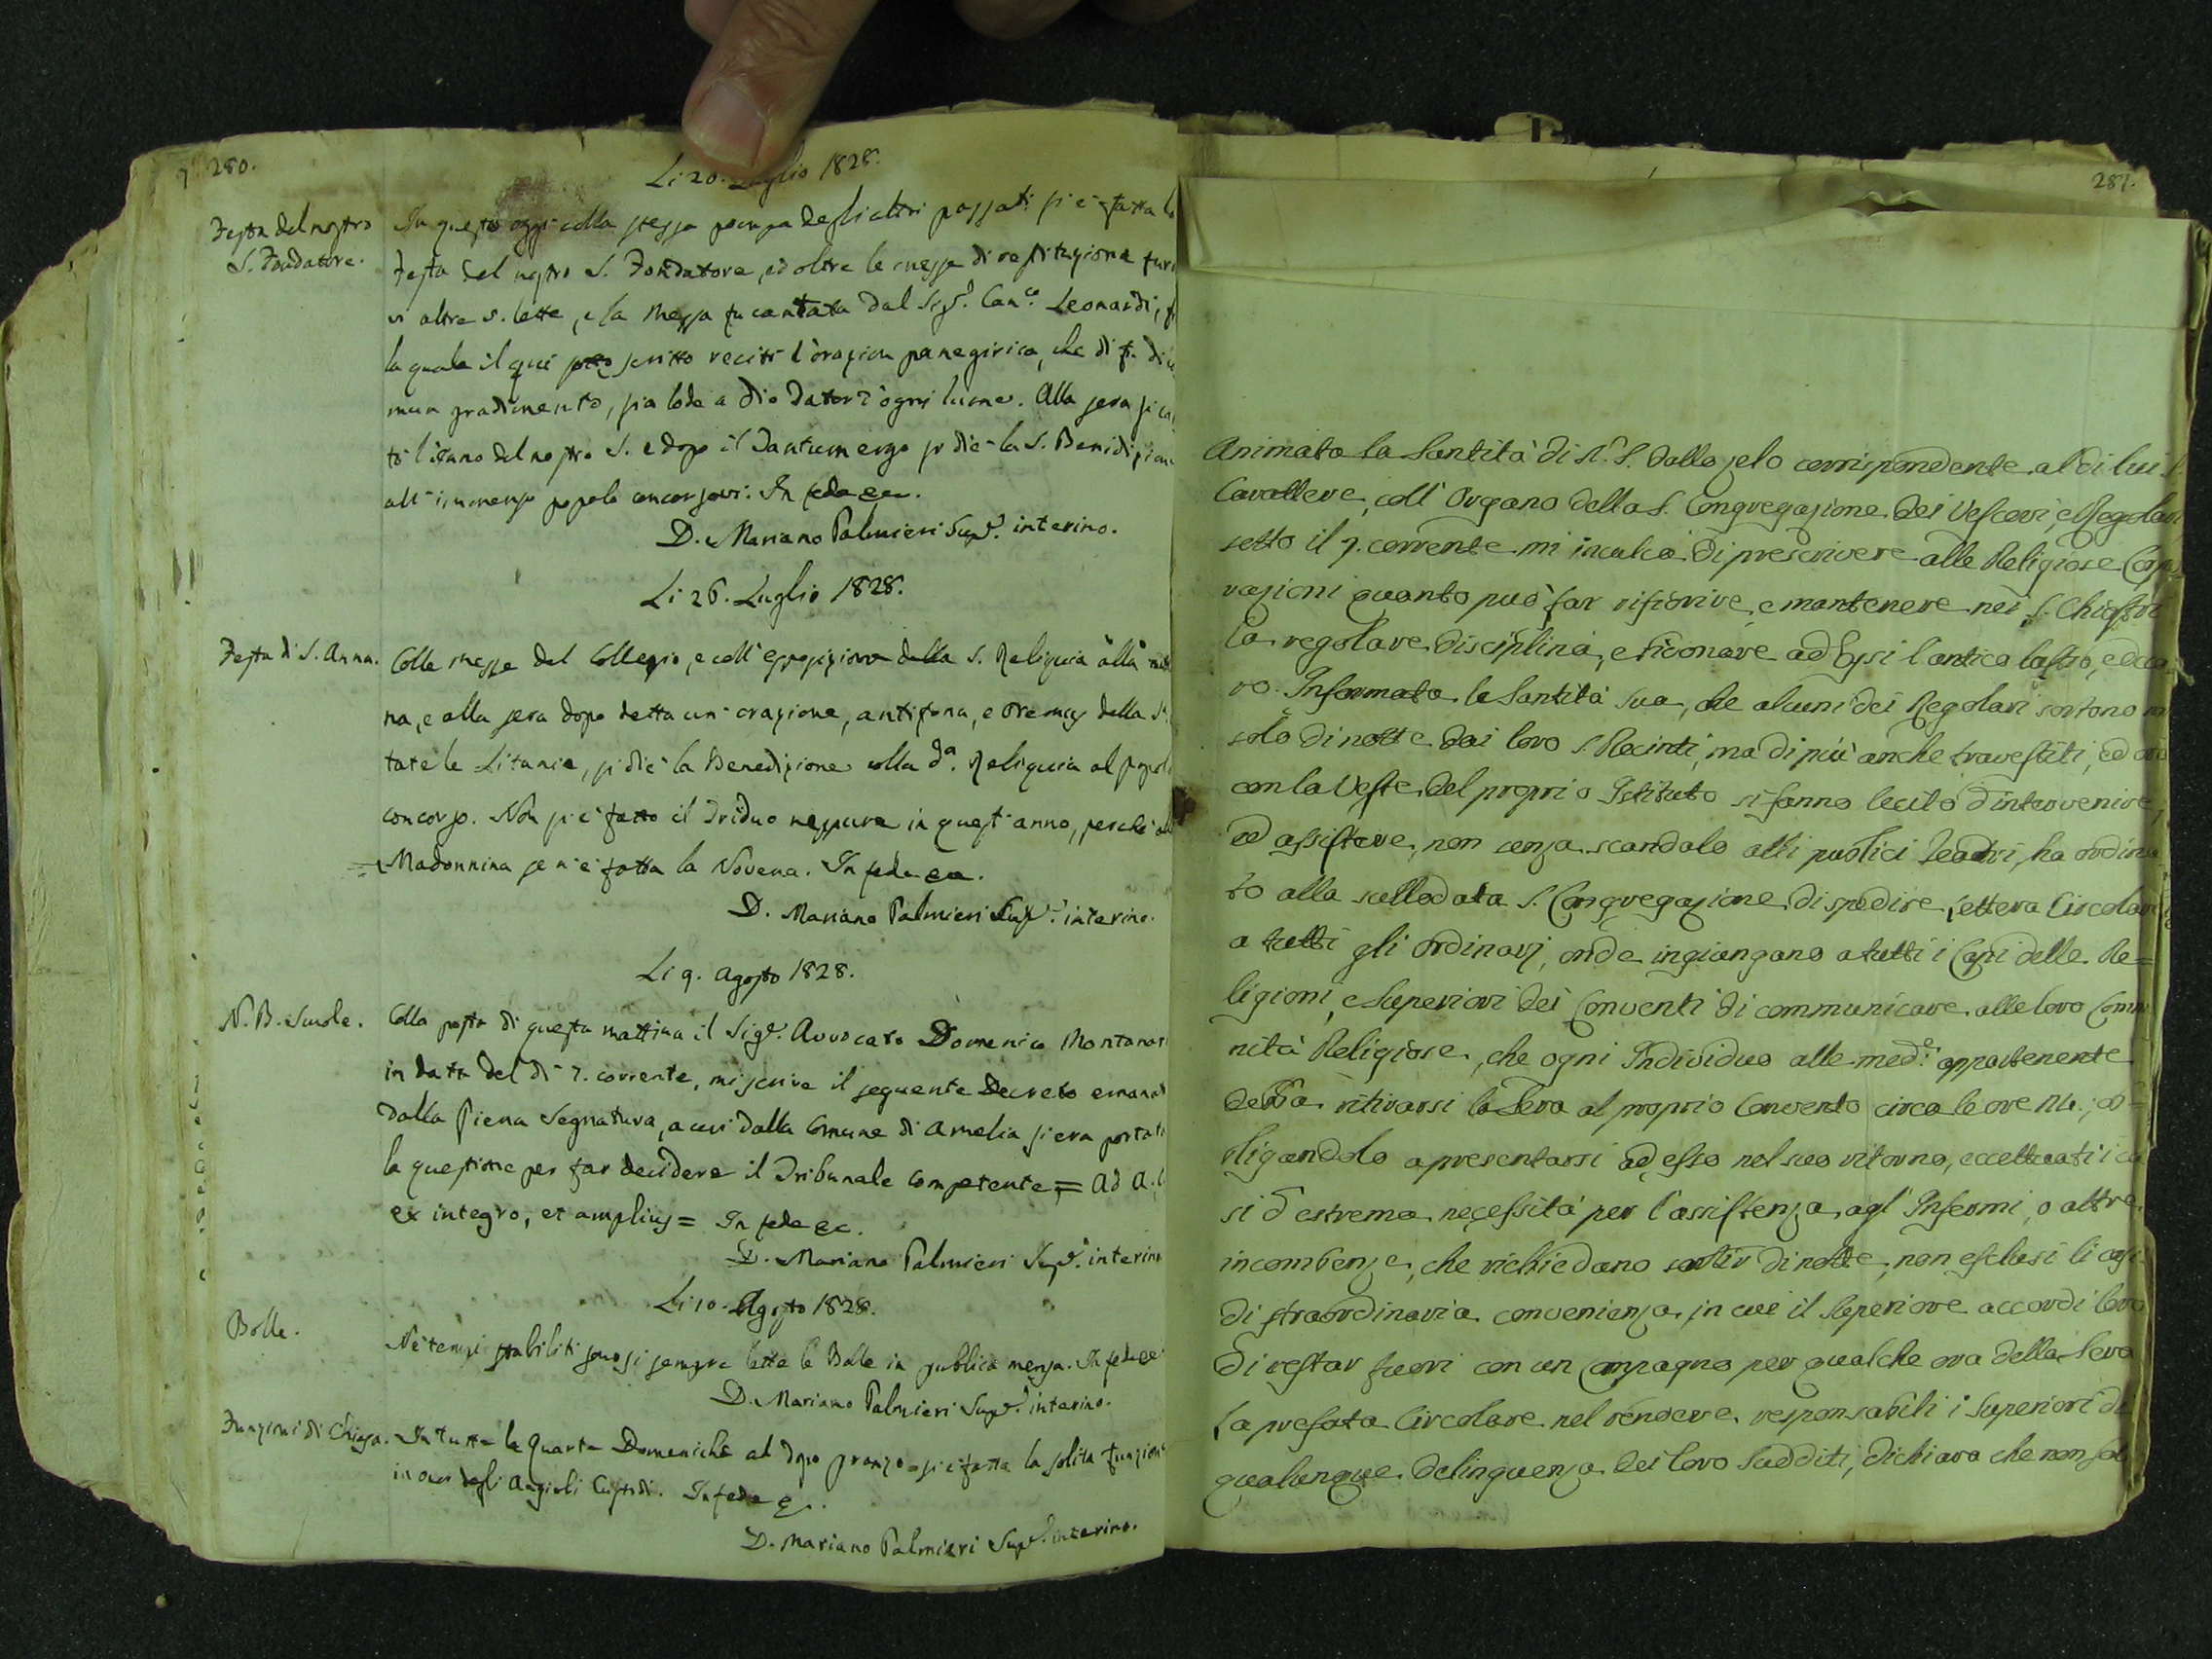 280.
Li 20. Luglio 1828.
Festa del nostro
S. Fondatore.
In questo oggi colla stessa pompa degli altri passati si è fatta la
festa del nostro S. Fondatore, ed oltre le messe di restituzione furo
vi altre v. lette, e la Messa fu cantata dal Sigr. Canco. Leonardi,
la quale il qui sotto scritto recitò l'orazion panegirica, che di
mun gradimento, sia lode a Dio Dator d'ogni lume. Alla sera si can
tò l'inno del nostro S. e dopo il Tantum ergo si diè la S. Benidizione
all'immenso popolo concorsovi. In fede ec.
D. Mariano Palmieri Supr. interino.
Li 26. Luglio 1828.
Festa di S. Anna.
Colle messe del Collegio, e coll'esposizione della S. Reliquia alla mati
na, e alla sera dopo detta un'orazione, antifona, e Oremus della S.
tate le Litanie, si diè la Benedizione colla da. Reliquia al popolo
concorso. Non si è fatto il Triduo neppure in quest'anno, perchè
Madonnina se n'è fatta la Novena. In fede ec.
D. Mariano Palmieri Supr. interino.
Li 9. Agosto 1828.
N. B. Scuole.
Colla posta di questa mattina il Sigr. Avvocato Domenico Montanari
in data del dì 7. corrente, mi scrive il seguente Decreto emanato
dalla Piena Segnatura, a cui dalla Comune di Amelia si era portata
la questione per far decidere il Tribunale Competente = Ad A.
ex integro, et amplius = In fede ec.
D. Mariano Palmieri Supr. interino
Li 10. Agosto 1828.
Bolle.
Ne' tempi stabiliti sonosi sempre lette le Bolle in pubblica mensa. In fede ec.
D. Mariano Palmieri Supr. interino.
Funzioni di Chiesa.
In tutte le Quarte Domeniche al dopo pranzo si è fatta la solita funzione
in onor degli Angioli Custodi. In fede
D. Mariano Palmieri Supr. interino.
281.
Animata la Santità di N. S. dallo zelo corrispondente al di lui
Carattere, coll'Organo della S. Congregazione dei Vescovi, e Regolari
sotto il 7. corrente mi inculca di prescrivere alle Religiose Corpo
razioni quanto può far rifiorire, e mantenere nei S. Chiostri
la regolare disciplina, e ridonare ad Essi l'antico lustro, e deco
ro. Informata la Santità sua, che alcuni dei Regolari sortono non
solo di notte dai loro S. Recinti, ma di più anche travestiti, ed ora
con la Veste del proprio Istituto si fanno lecito d'intervenire,
ed assistere, non senza scandalo alli publici Teatri, ha ordina
to alla sullodata S. Congregazione di spedire Lettera Circolare
a tutti gli Ordinarj, onde ingiongano a tutti i Capi delle Re=
ligioni, e Superiori dei Conventi di communicare alle loro Commu
nità Religiose, che ogni Individuo alle mede. appartenente
debba ritirarsi la Sera al proprio Convento circa le ore 24.; ob=
bligandolo a presentarsi ad esso nel suo ritorno, eccettuati i ca
si d'estrema necessità per l'assistenza agl'Infermi, o altre
incombenze, che richiedano sortir di notte, non esclusi li casi
di straordinaria convenienza, in cui il Superiore accordi loro
di restar fuori con un Compagno per qualche ora della Sera
La prefata Circolare nel rendere responsabili i Superiori di
qualunque delinquenza dei loro Sudditi, dichiara che non solo